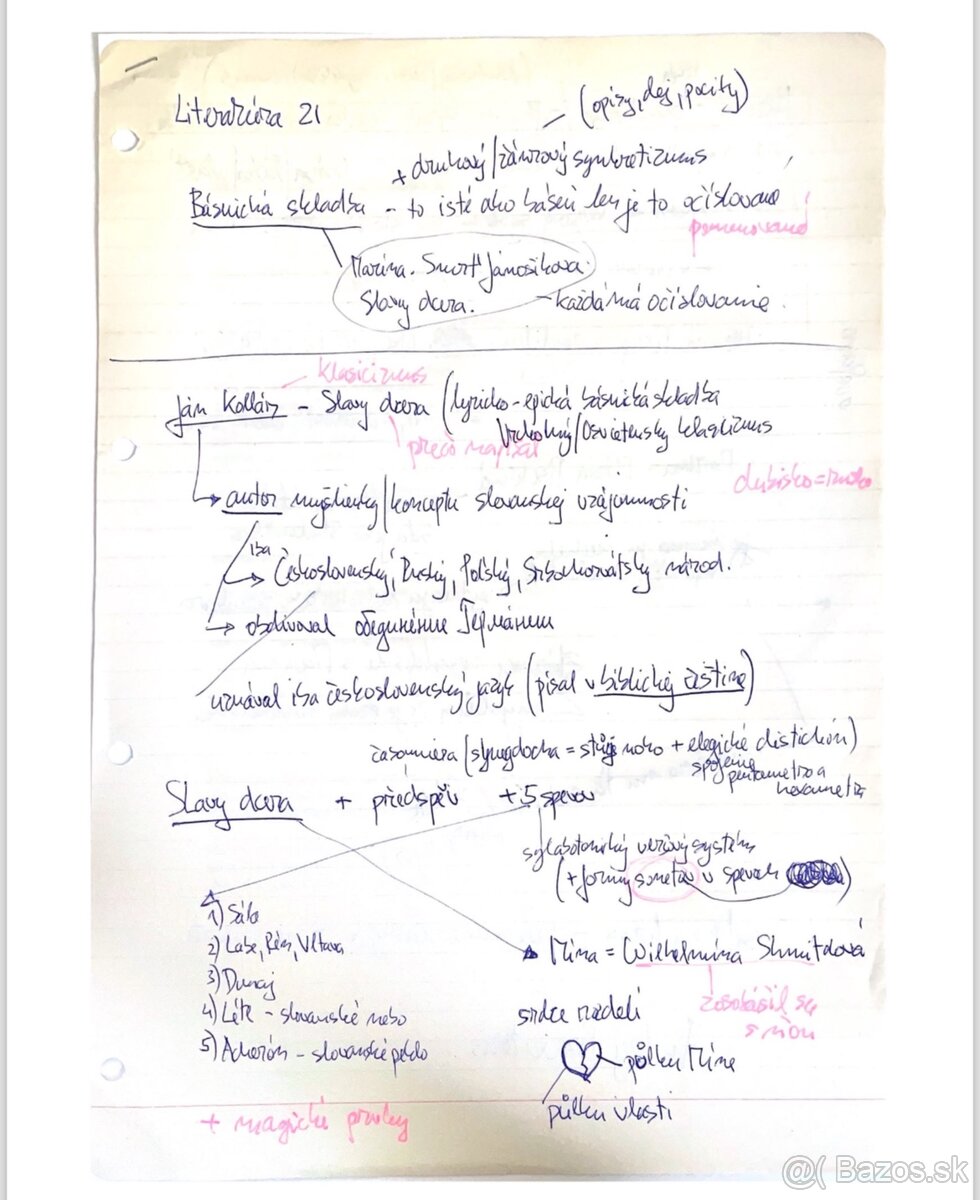 Literatúra 21
(opisy, dej, pocity)
+ druhový/žánrový synkretizmus
Básnická skladba - to isté ako báseň len je to očíslované
pomenované
Marína. Smrť Jánošíkova.
Slávy dcera. - každá má očíslovanie.
klasicizmus
Ján Kollár - Slávy dcera (lyricko-epická básnická skladba
Vrcholný/Osvietenský klasicizmus
prečo napísal
dubisko = Rusko
autor myšlienky/konceptu slovanskej vzájomnosti
iba
Československý, Ruský, Poľský, Srbochorvátsky národ.
obdivoval
uznával iba československý jazyk (písal v biblickej češtine)
časomiera (synegdocha = + elegické distichón)
spojenie
pentametra a
hexametra
Slávy dcera + předspěv + 5 spevov
sylabotonický veršový systém
(+ formy sonetov v spevoch)
1) Sála
2) Labe, Rén, Vltava
3) Dunaj
4) Léthe - slovanské nebo
5) Acherón - slovanské peklo
Mína = Wilhelmína Shmitdová
zosobášil sa
s ňou
srdce rozdelí
půlku Míne
půlku vlasti
+ magické prvky
@( Bazos.sk